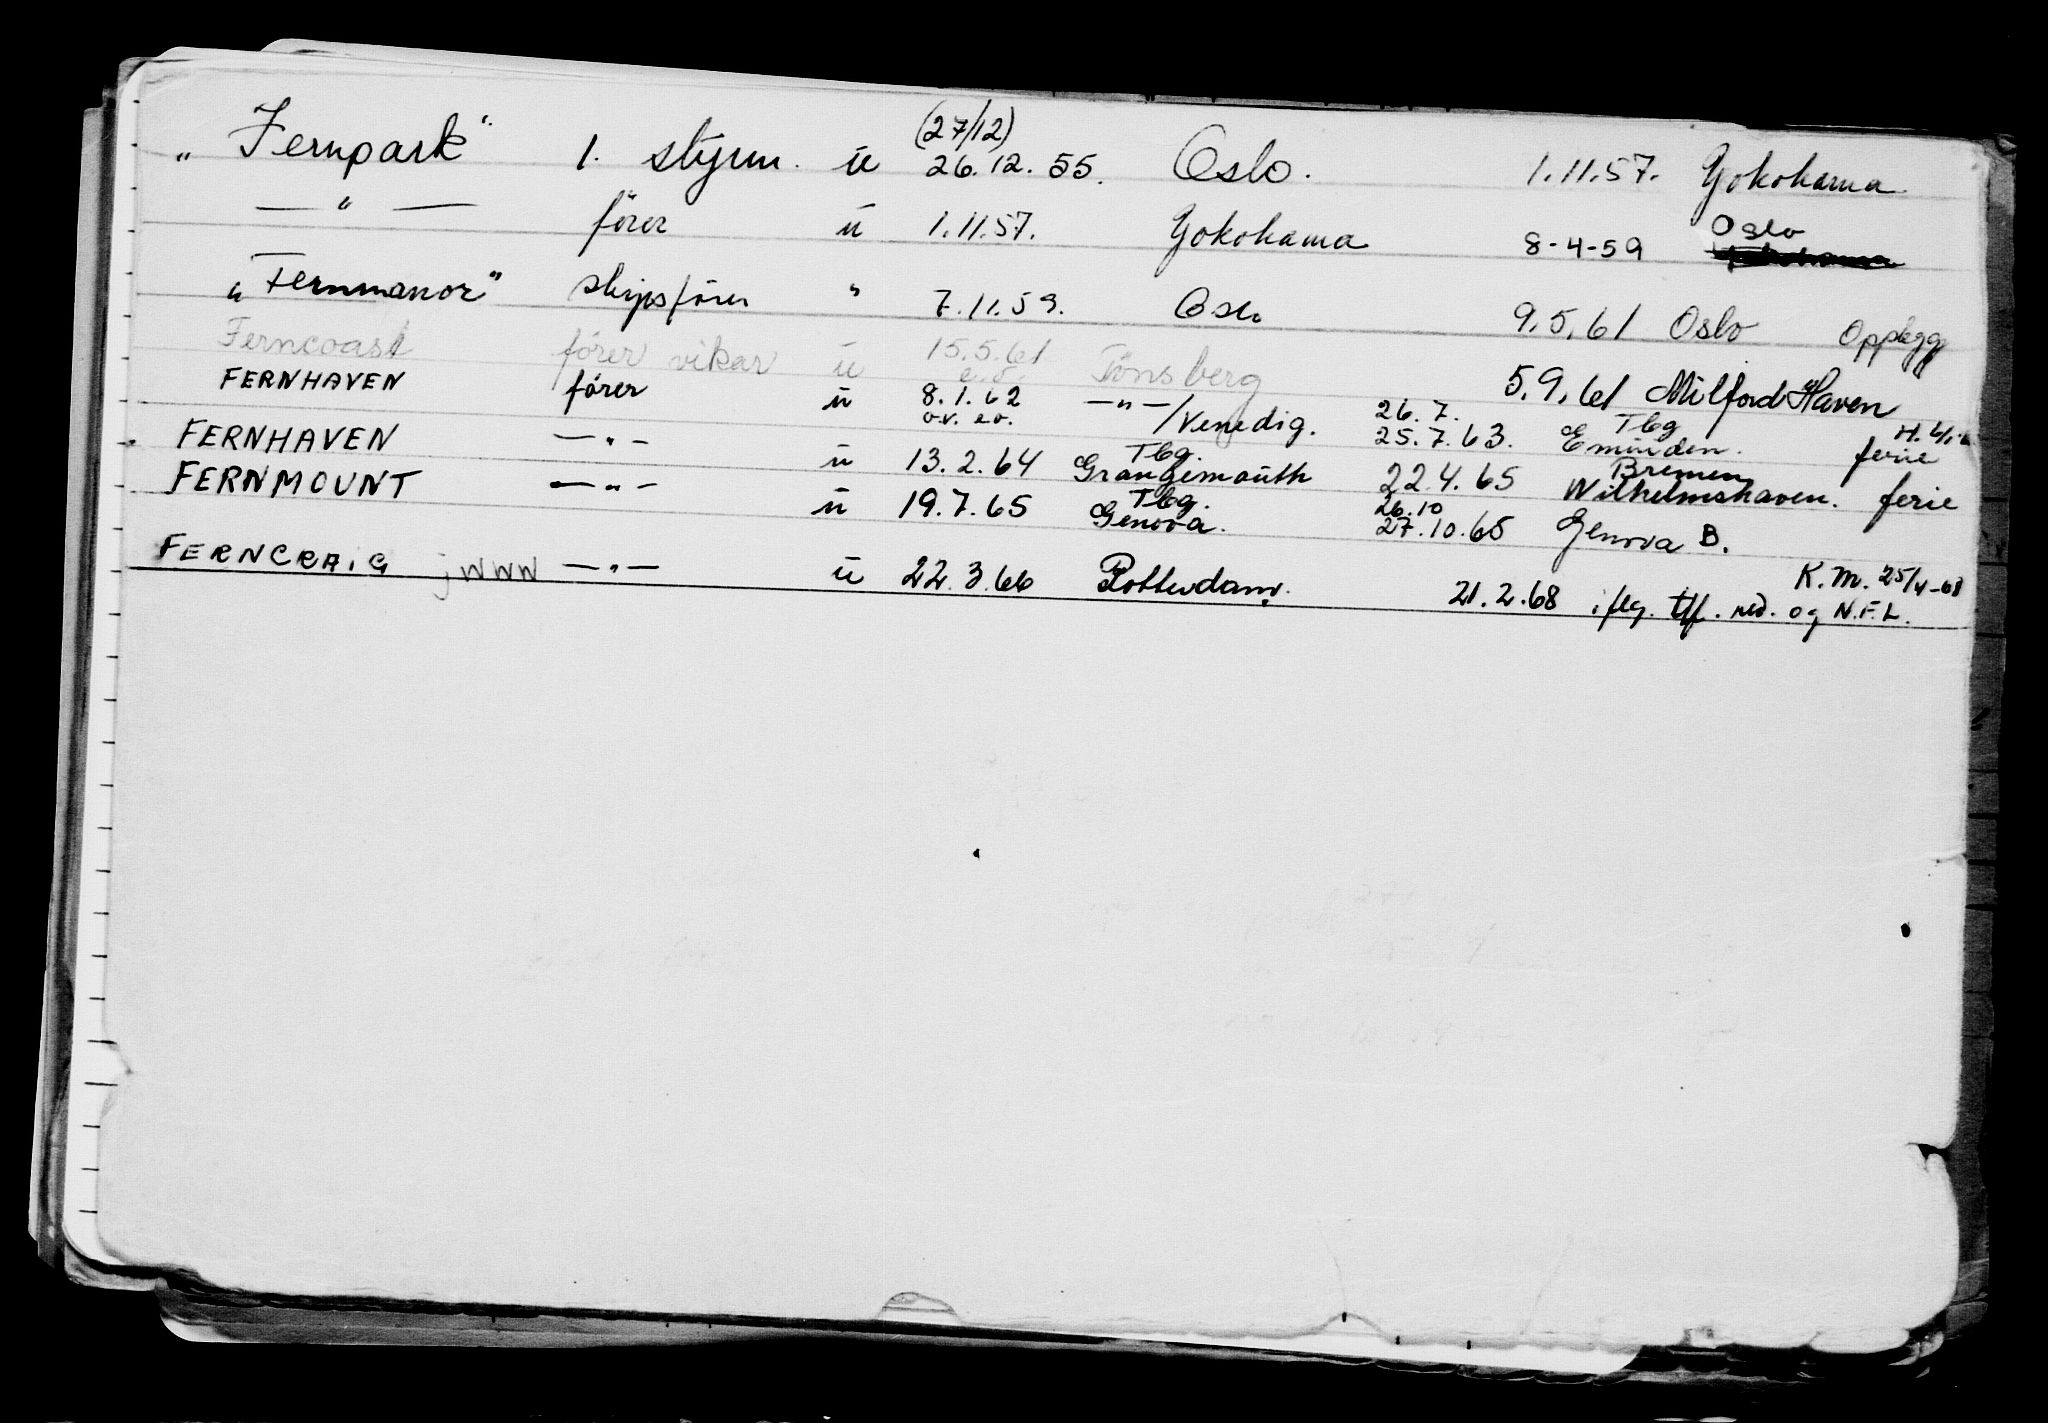 (27/12)
„ Fernpark" 1. styrm. u 26.12.55. Oslo. 1.11.57. Yokohama
— " — förer u 1.11.57. Yokohama 8-4-59 Oslo
„Fernmanor" skipsförer " 7.11.59. Oslo 9.5.61 Oslo Opplegg
Ferncoast förer vikar u 15.5.61 e.o. Tönsberg 5.9.61 Milford Haven
FERNHAVEN förer u 8.1.62 o.v. e.o. —"—/Venedig. 26.7. 25.7.63. Tbg Eminden. ferie
FERNHAVEN —"— u 13.2.64 Tbg. Grangemouth 22.4.65 Bremen Wilhelmshaven. ferie
FERNMOUNT —"— u 19.7.65 Tbg. Genova. 26.10 27.10.65 Genova B.
FERNCRAIG jWWW —"— u 22.3.66 Rotterdam. 21.2.68 i flg. tlf. red. og N.F.L. K.M. 25/4-68